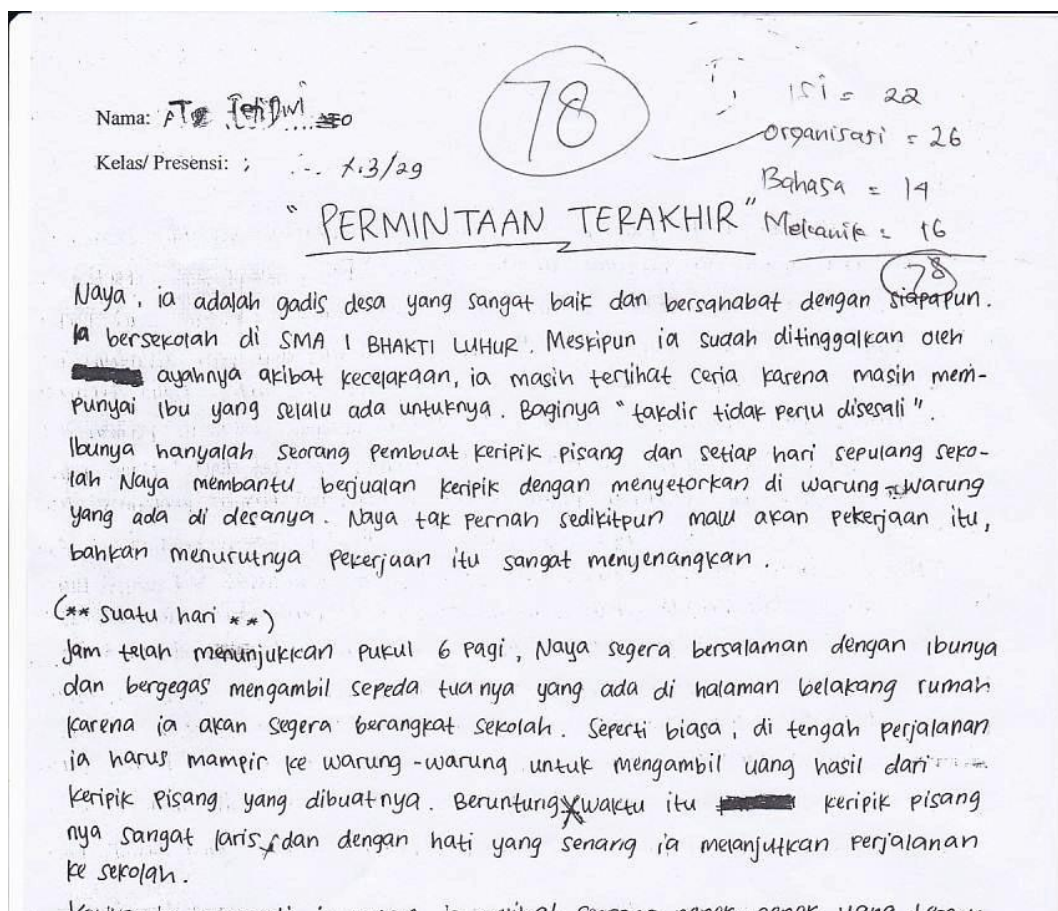 78
Isi = 22
organisasi = 26
Bahasa = 14
Mekanik = 16
78
Nama:
Kelas/ Presensi: ; X.3/29
"PERMINTAAN TERAKHIR"
Naya, ia adalah gadis desa yang sangat baik dan bersahabat dengan siapapun.
Ia bersekolah di SMA 1 BHAKTI LUHUR. Meskipun ia sudah ditinggalkan oleh
ayahnya akibat kecelakaan, ia masih terlihat ceria karena masih mem-
punyai ibu yang selalu ada untuknya. Baginya "takdir tidak perlu disesali".
Ibunya hanyalah seorang pembuat keripik pisang dan setiap hari sepulang seko-
lah Naya membantu berjualan keripik dengan menyetorkan di warung-warung
yang ada di desanya. Naya tak pernah sedikitpun malu akan pekerjaan itu,
bahkan menurutnya pekerjaan itu sangat menyenangkan.
(** suatu hari **)
Jam telah menunjukkan pukul 6 pagi, Naya segera bersalaman dengan ibunya
dan bergegas mengambil sepeda tuanya yang ada di halaman belakang rumah
karena ia akan segera berangkat sekolah. Seperti biasa, di tengah perjalanan
ia harus mampir ke warung-warung untuk mengambil uang hasil dari
keripik pisang yang dibuatnya. Beruntung waktu itu keripik pisang
nya sangat laris, dan dengan hati yang senang ia melanjutkan perjalanan
ke sekolah.